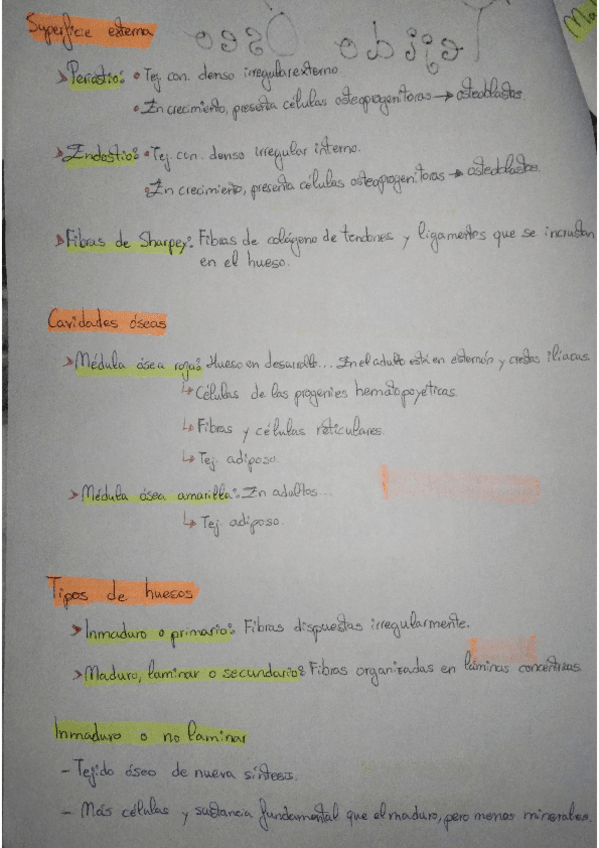 Superficie externa
> Periostio: • Tej. con. denso irregular externo.
• En crecimiento, presenta células osteoprogenitoras → osteoblastos.
> Endostio: • Tej. con. denso irregular interno.
• En crecimiento, presenta células osteoprogenitoras → osteoblastos.
> Fibras de Sharpey: Fibras de colágeno de tendones y ligamentos que se incrustan
en el hueso.
Cavidades óseas
> Médula ósea roja: Hueso en desarrollo... En el adulto está en esternón y crestas iliacas.
↳ Células de las progenies hematopoyéticas.
↳ Fibras y células reticulares.
↳ Tej. adiposo.
> Médula ósea amarilla: En adultos...
↳ Tej. adiposo.
Tipos de huesos
> Inmaduro o primario: Fibras dispuestas irregularmente.
> Maduro, laminar o secundario: Fibras organizadas en láminas concéntricas.
Inmaduro o no laminar
- Tejido óseo de nueva síntesis.
- Más células y sustancia fundamental que el maduro, pero menos minerales.